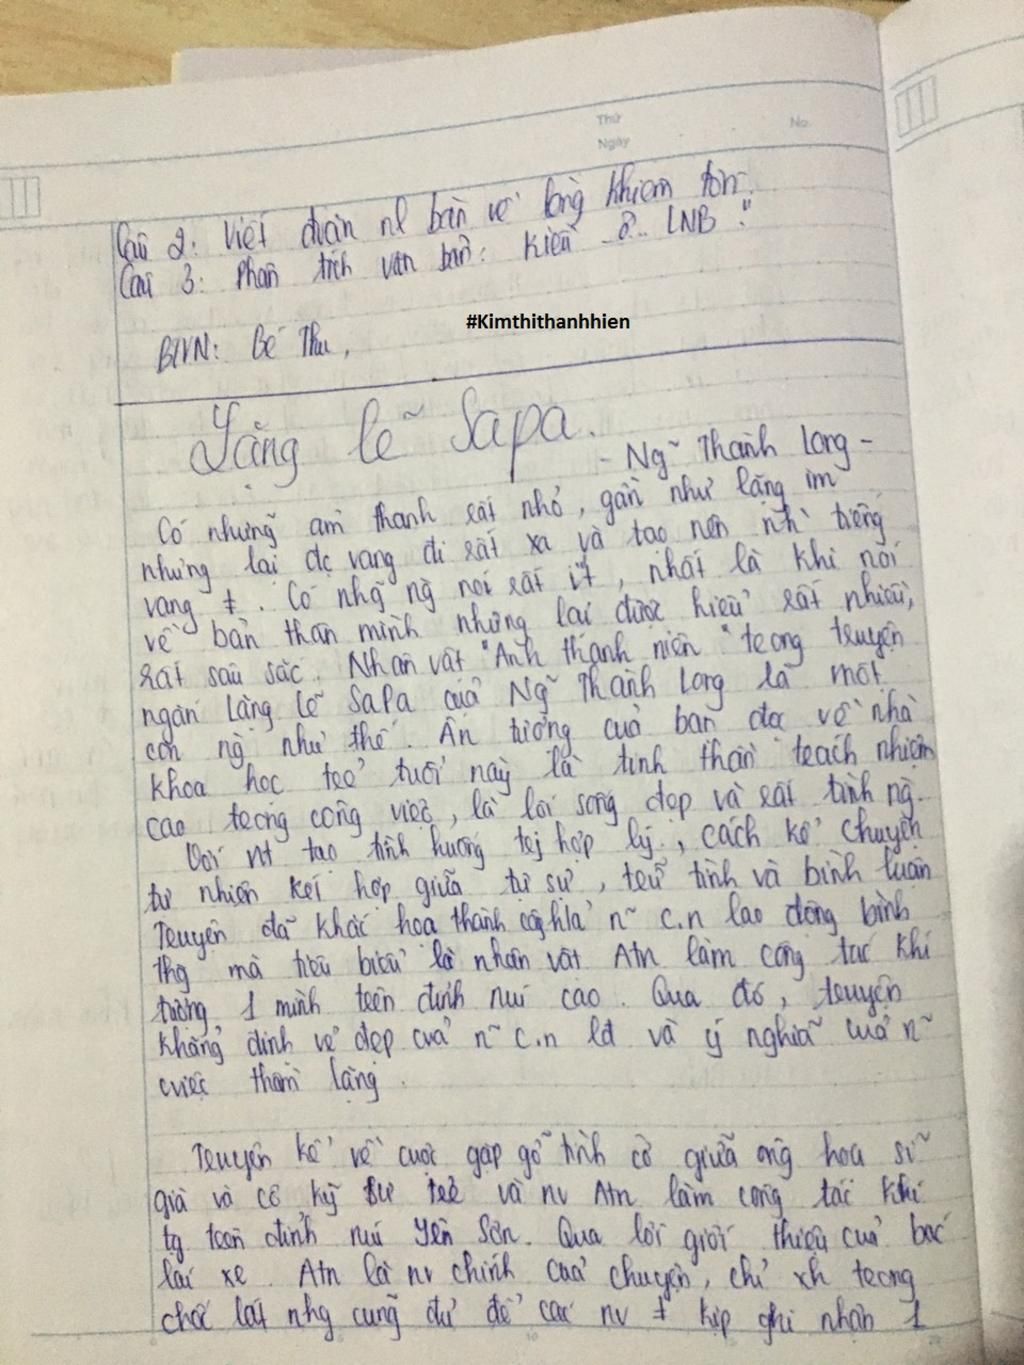 Thứ
Ngày
No.
Câu 2: Viết đoạn nl bàn về lòng khiêm tốn.
Câu 3: Phân tích văn bản: Kiều ..ở.. LNB"
#Kimthithanhhien
BTVN: Bé Thu,
Lặng lẽ Sapa.
- Ng~ Thành Long -
Có những âm thanh rất nhỏ, gần như lặng im
nhưng lại đc vang đi rất xa và tạo nên nh` tiếng
vang ≠. Có nhg~ ng nói rất ít, nhất là khi nói
về bản thân mình nhưng lại được hiểu rất nhiều,
rất sâu sắc. Nhân vật "Anh thanh niên" trong truyện
ngắn Lặng lẽ SaPa của Ng~ Thành Long là một
con ng như thế. Ấn tượng của bạn đọc về nhà
khoa học trẻ tuổi này là tinh thần trách nhiệm
cao trong công việc, là lối sống đẹp và rất tình ng.
Với nt tạo tình huống hợp lý, cách kể chuyện
tự nhiên kết hợp giữa tự sự, trữ tình và bình luận
Truyện đã khắc họa thành công n~ c.n lao động bình
thg mà tiêu biểu là nhân vật Atn làm công tác khí
tượng 1 mình trên đỉnh núi cao. Qua đó, truyện
khẳng định vẻ đẹp của n~ c.n lđ và ý nghĩa của n~
cviệc thầm lặng.
Truyện kể về cuộc gặp gỡ tình cờ giữa ông họa sĩ
già và cô kỹ sư trẻ và nv Atn làm công tác khí
tg trên đỉnh núi Yên Sơn. Qua lời giới thiệu của bác
lái xe. Atn là nv chính của chuyện, chỉ xh trong
chốc lát nhg cũng đủ để các nv ≠ kịp ghi nhận 1